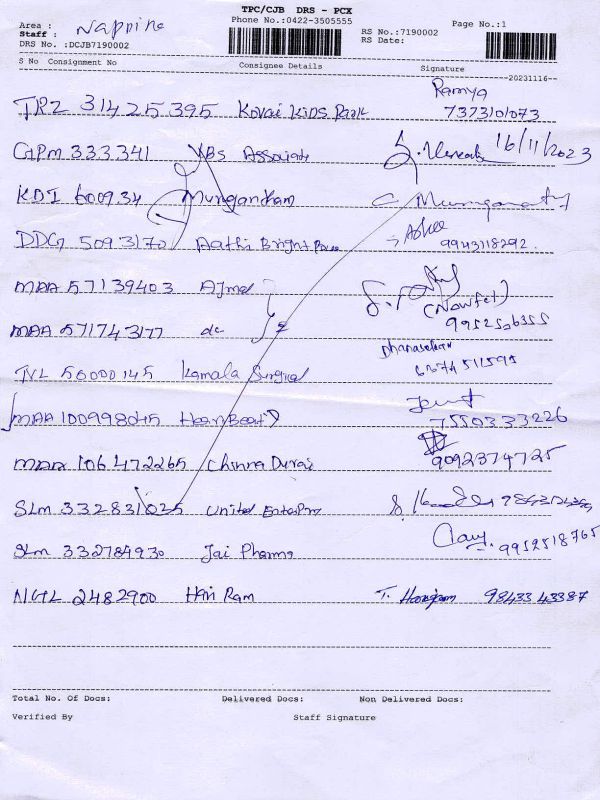 TPC/CJB DRS - PCX
Area :
Phone No.:0422-3505555
Page No.:1
Staff :
RS No.:7190002
DRS No. :DCJB7190002
RS Date:
S No Consignment No Consignee Details Signature
20231116
Ramya
TRZ 31425395 Kovai Kids Park 7373101073
GPM 333341 VBS Associate 16/11/2023
KDI 600934 Murugantham
DDG 5093170 Aathi Bright 9943118292
MAA 57139403 Ajmal
(Nawfel)
MAA 571743177 do
TVL 56000145 Kamala Surgical
MAA 100998045 HeariBeat'D 7550333226
MAA 106472265 Chinna Durai 9092374725
SLM 332831025 United
SLM 332784930 Jai Pharma 9952518765
NGL 2482900 Hari Ram T. Hariram 9843343387
Total No. Of Docs: Delivered Docs: Non Delivered Docs:
Verified By Staff Signature